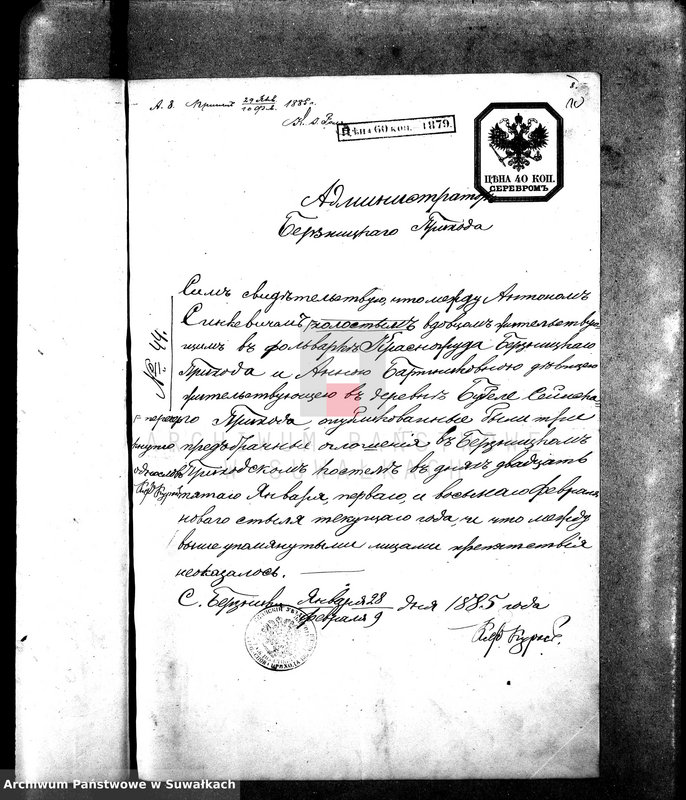 А. 8. 29 Янв. / 10 Фев. 1885 г.
Цѣна 60 коп. 1879.
ЦѢНА 40 КОП.
СЕРЕБРОМЪ
Администраторъ
Берзницкаго Прихода
№ 44.
Симъ свидѣтельствую, что между Антономъ
Синкевичамъ холостымъ вдовцомъ жительствую-
щимъ въ фольваркѣ Красногруда Берзницкаго
Прихода и Анною Бартниковною дѣвицею
жительствующею въ деревнѣ Сейнска-
го Прихода опубликованные были три
предъбрачные оглошенія въ Берзницкомъ
Приходскомъ костелѣ въ дняхъ двадцать
пятаго Января, перваго, и восьмаго февраля
новаго стыля текущаго года, и что между
выше упомянутыми лицами препятствія
неоказалось.
С. Берзники Января 28 / февраля 9 дня 1885 года
Archiwum Państwowe w Suwałkach